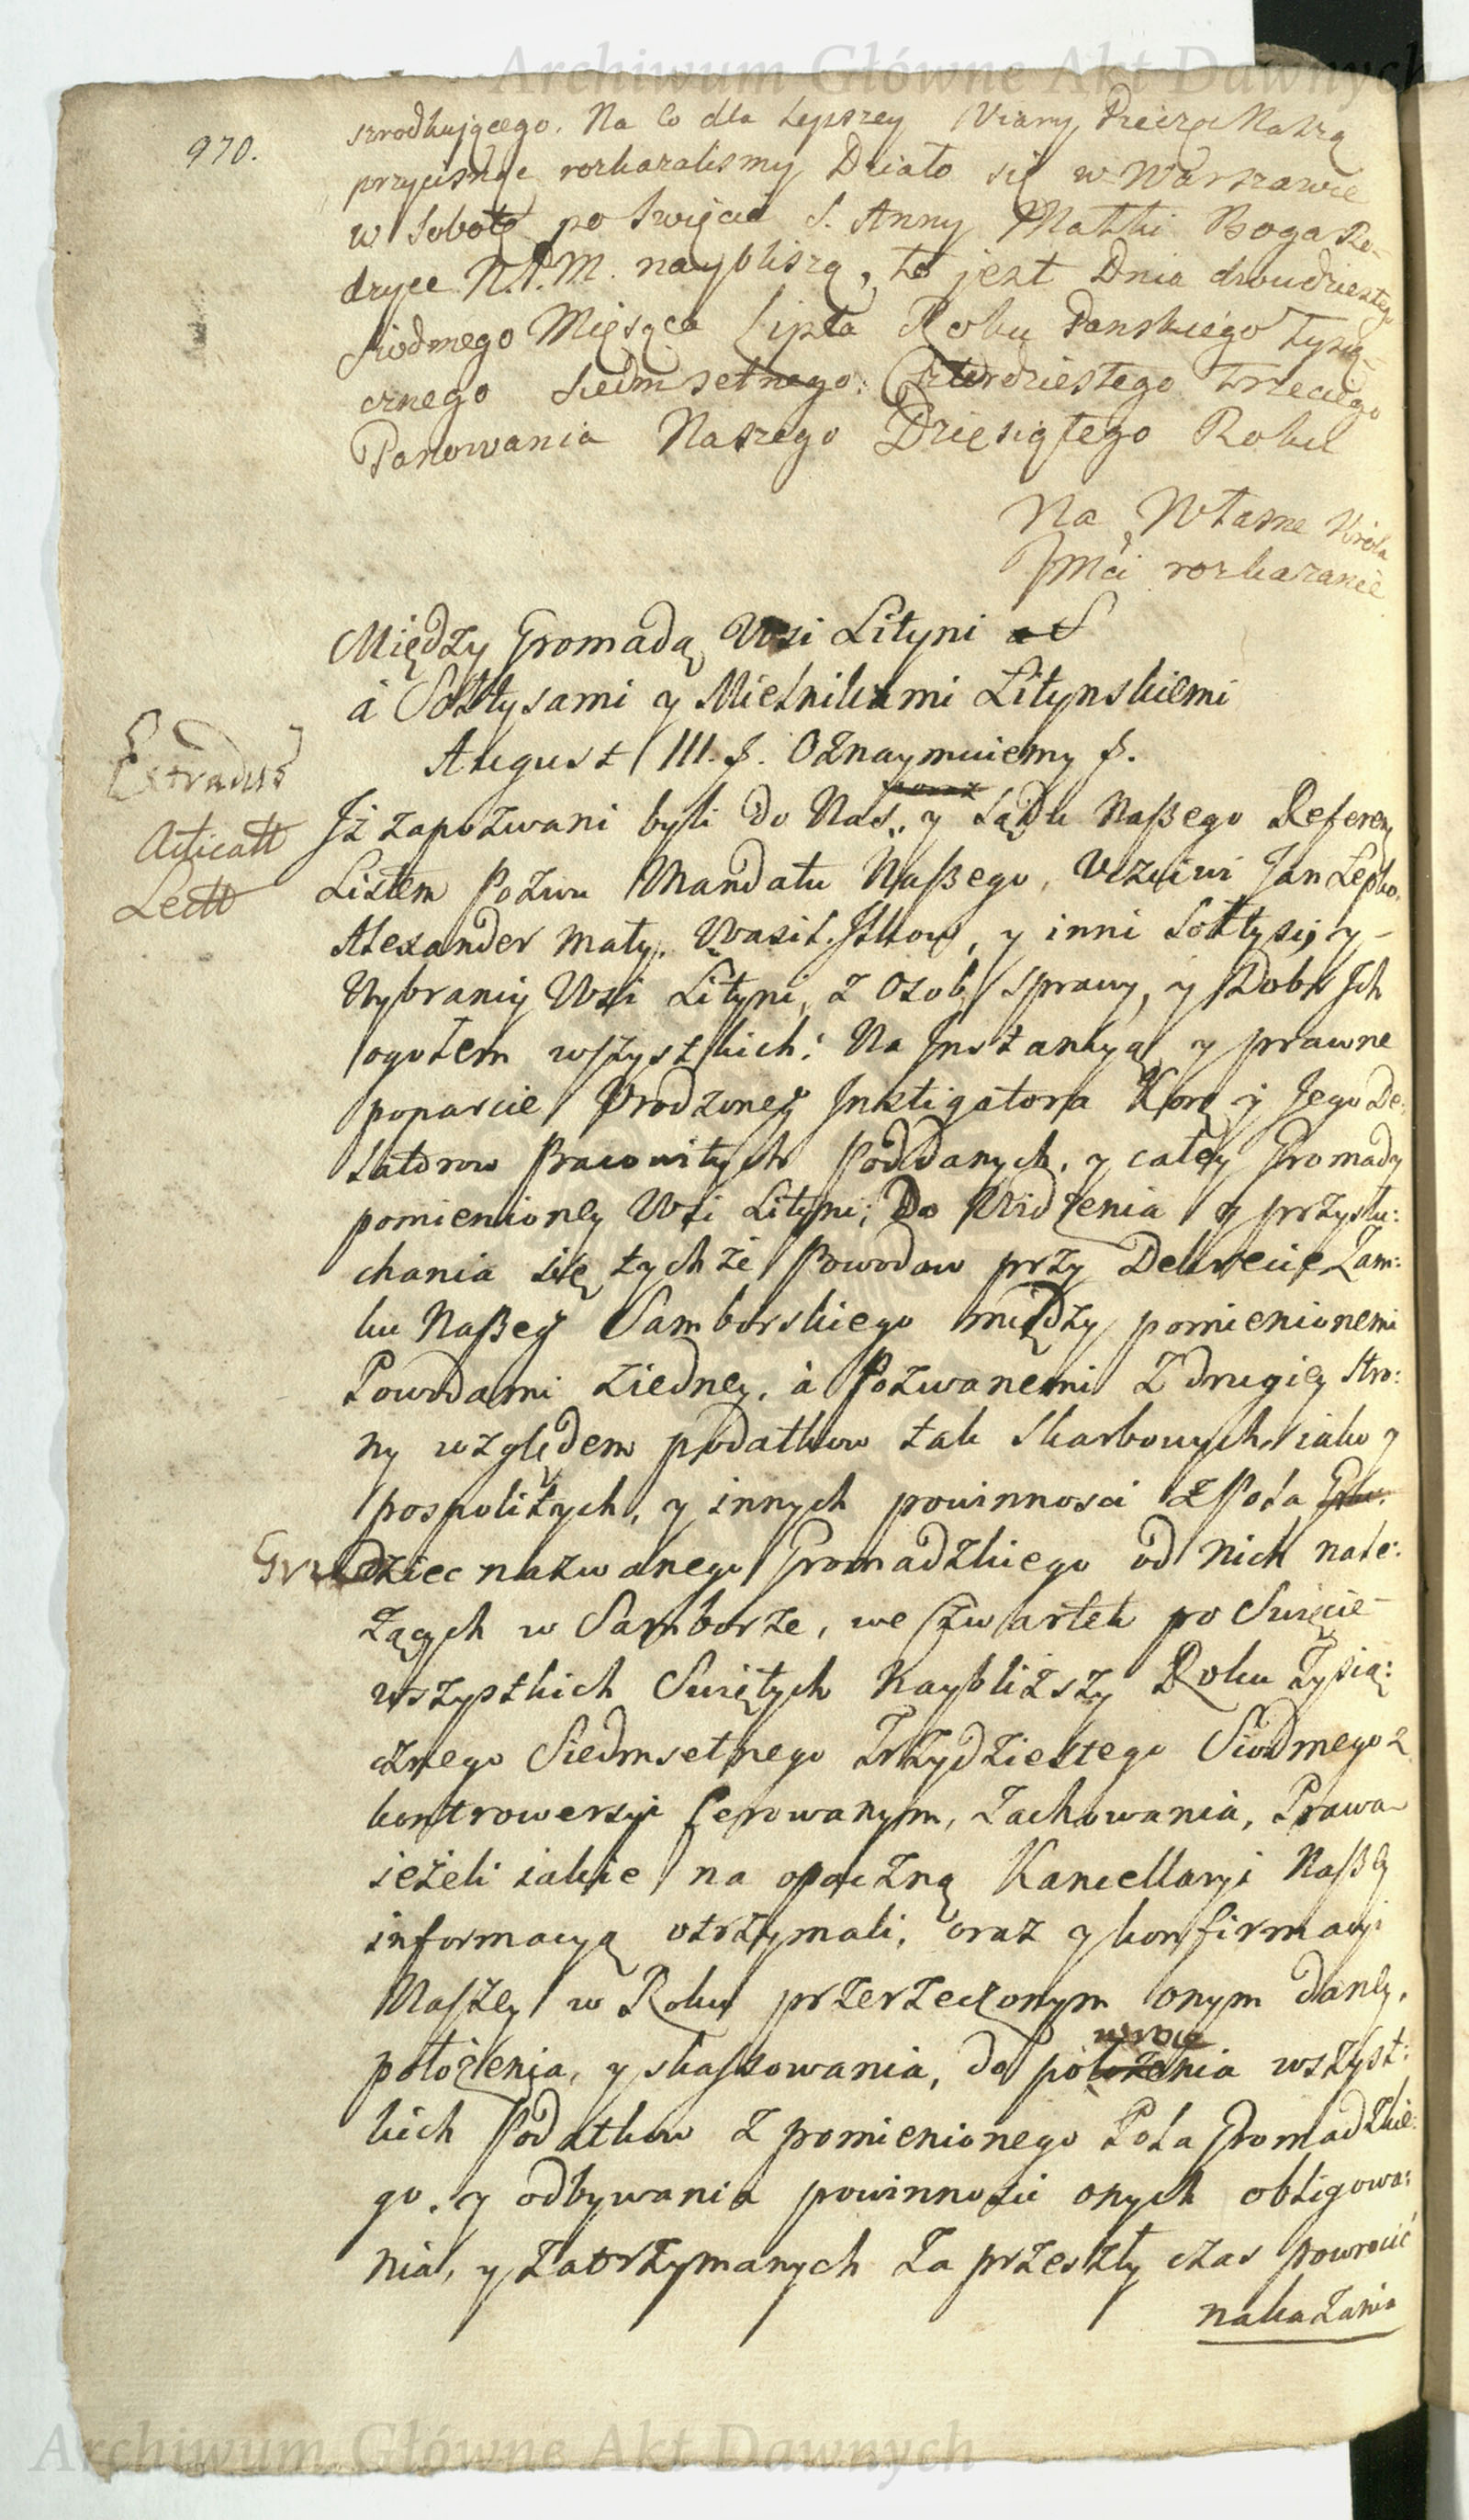 Archiwum Główne Akt Dawnych
970.
szrodkującego. Na Co dla Lepszey Wiary Pieczęć Naszą
przycisnąc rozkazalismy Działo się w Warszawie
w Sobotę po Swięcie S. Anny Matki Boga Ro-
dzyce N.P.M. naybliszą, to jest Dnia dwudziestego
siodmego Miesąca Lipca Roku Panskiego Tysią-
cznego Siedmsetnego Czterdziestego Trzeciego
Panowania Naszego Dziesiątego Roku
Na Własne Króla
JMci rozkazanie
Między Gromadą Wsi Lityni
a Sołtysami y Mielnikami Litynskiemi
August III. f. Oznaymuiemy f.
Extradit
Aticatt
Lectt
Jż zapozwani byli do Nas, y Sądu Naßego Referen
Listem Pozwu Mandatu Naßego, Uczciwi Jan Lepko.
Alexander Mały, Wasil Jlkow, y inni Sołtysi, y
Wybrancy Wsi Lityni, z Osob, Sprawy, y Dobr Jch
ogołem wszystkich; Na Jnstancyą y prawne
poparcie Urodzoneg Jnstigatora Kor y Jego De:
latorow Pracowitych Poddanych, y całey Gromady
pomienioney Wsi Lityni; Do Widzenia y przysłu:
chania się tychże Powodow przy Dekrecie Zam:
ku Naßeg Samborskiego między pomienionemi
Powodami ziedney, a Pozwanemi z drugiey Stro:
ny względem podatkow tak Skarbowych, iako y
pospolitych, y innych powinnosci z Pola
Gru dziec nazwanego Gromadzkiego od nich nale:
żących w Samborze, we Czwartek po Swięcie
wszystkich Swiętych Naybliższy Roku Tysią:
cznego Siedmsetnego Trzydziestego Siodmego z
kontrowersyi ferowanym, Zachowania, Prawa
ieżeli iakie na opaczną Kancellaryi Naßey
informacyą otrzymali, oraz y konfirmacyi
Naszey w Roku przerzeczonym onym daney,
położenia, y skassowania, do położenia wszyst:
kich Podatkow z pomienionego Pola Gromadzkie:
go, y odbywania powinnosci onych obligowa:
nia, y zatrzymanych za przeszły czas powrocić
nakazania
Archiwum Główne Akt Dawnych